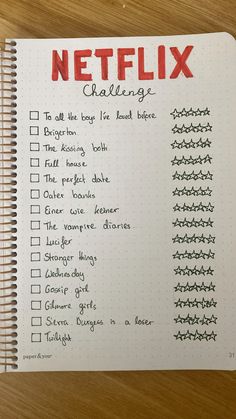 NETFLIX
Challenge
To all the boys I've loved before
Brigerton
The kissing both
Full house
The perfect date
Outer banks
Einer wie keiner
The vampire diaries
Lucifer
Stranger things
Wednesday
Gossip girl
Gilmore girls
Sierra Burgess is a loser
Twilight
paper & you
31